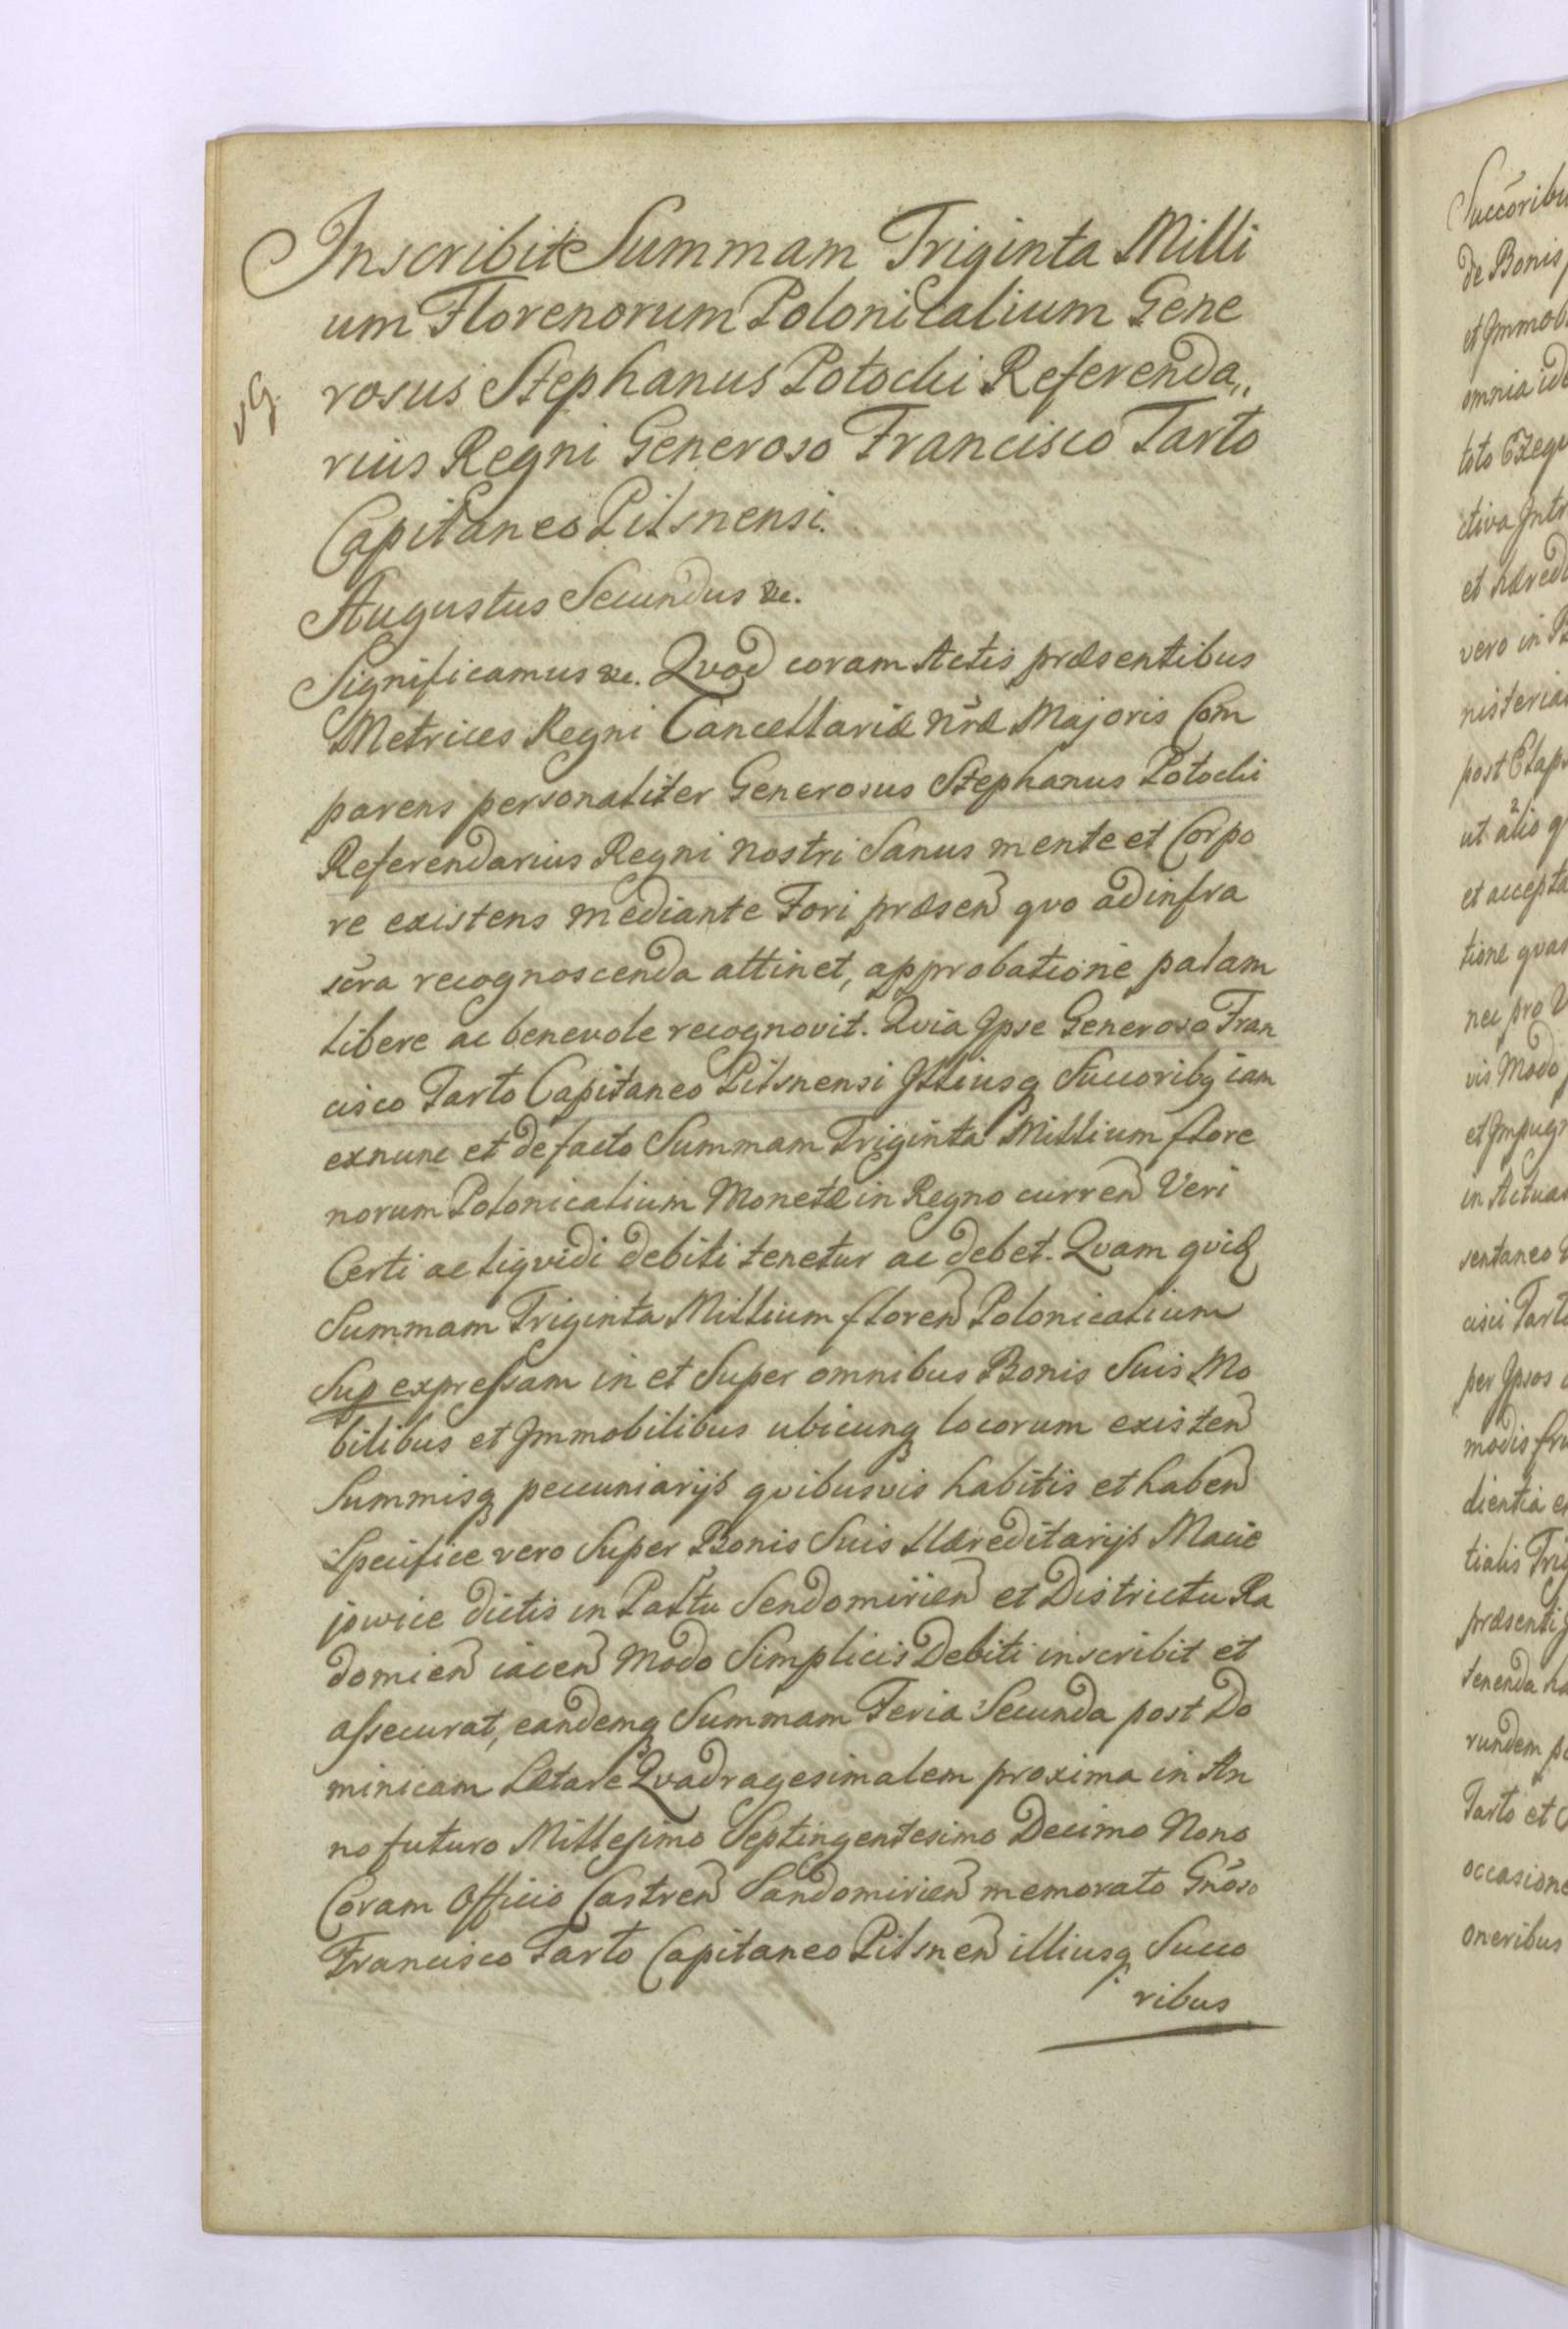 Inscribit Summam Triginta Milli
um Florenorum Polonicalium Gene
rosus Stephanus Potocki Referenda,,
rius Regni Generoso Francisco Tarło
Capitaneo Pilsnensi.
Augustus Secundus &c.
Significamus &c. Qvod coram Actis præsentibus
Metrices Regni Cancellariæ nr̃æ Majoris Com
parens personaliter Generosus Stephanus Potocki
Referendarius Regni nostri Sanus mente et Corpo
re existens mediante Fori præsen qvo ad infra
scra recognoscenda attinet, approbatione palam
libere ac benevole recognovit. Qvia Ipse Generoso Fran
cisco Tarło Capitaneo Pilsnensi Illiusq Succoribq iam
exnunc et de facto Summam Triginta Millium flore
norum Polonicalium Monetæ in Regno curren Veri
Certi ac liqvidi debiti tenetur ac debet. Qvam qvid
Summam Triginta Millium floren Polonicalium
Sup expressam in et Super omnibus Bonis Suis Mo
bilibus et Immobilibus ubicunq locorum existen
Summisq pecuniarijs qvibusvis habitis et haben
Specifice vero Super Bonis Suis Hæreditarijs Macie
jowice dictis in Pałtu Sendomirien et Districtu Ra
domien iacen Modo Simplicis Debiti inscribit et
assecurat, eandemq Summam Feria Secunda post Do
minicam Lætare Qvadragesimalem proxima in An
no futuro Millesimo Septingentesimo Decimo Nono
Coram Officio Castren Sandomirien memorato Gnoso
Francisco Tarło Capitaneo Pilsnen illiusq Succo
ribus
Succoribu
de Bonis
et Immob
omnia
toto
ctiva
et hæred
vero in
nisteria
post Elaps
ut alio q
et accepta
tione qvar
nec pro
vis Modo
et Impugn
in Actua
sentaneo
cisci Tarł
per Ipsos
modis
dientia
tialis Trig
præsenti
tenenda ha
rundem
Tarło et
occasione
oneribus